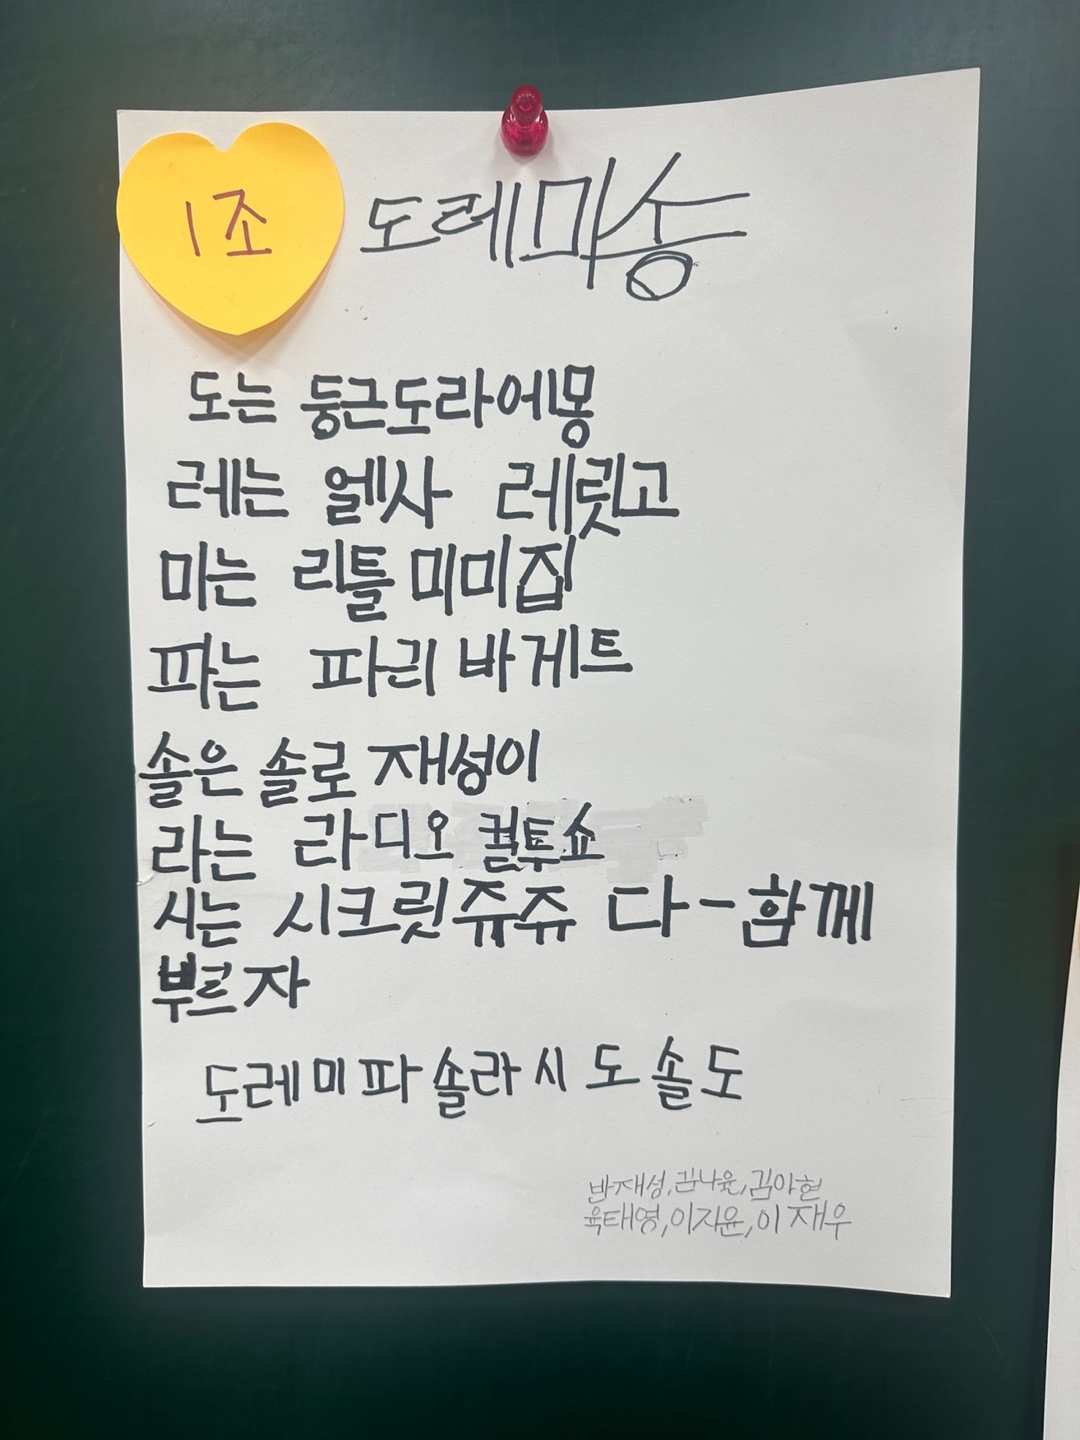 1조
도레미송
도는 둥근도라에몽
레는 엘사 레릿고
미는 리틀미미집
파는 파리바게트
솔은 솔로재성이
라는 라디오 컬투쇼
시는 시크릿쥬쥬 다-함께
부르자
도레미파솔라시도솔도
반재성,김나윤,김아현
육태영,이지윤,이재우